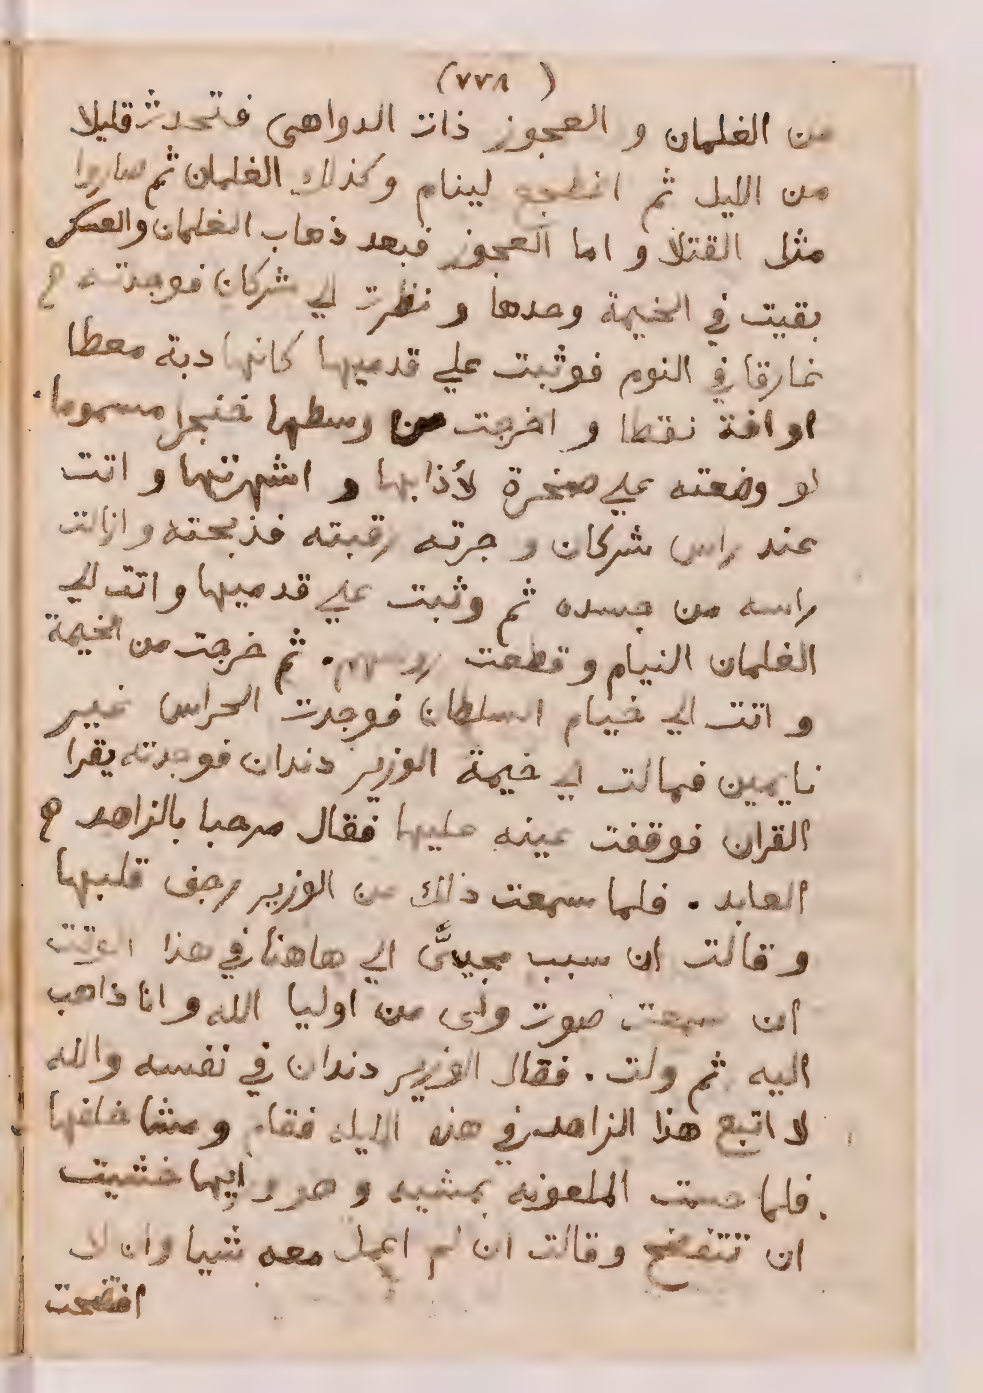 (٧٧٨)
من الغلمان و العجوز ذات الدواهى فتحدث قليلا
من الليل ثم اضطجع لينام وكذلك الغلمان ثم صاروا
مثل القتلا و اما العجوز فبعد ذهاب الغلمان والعسكر
بقيت في الخيمة وحدها و نظرت الي شركان فوجدته
غارقا في النوم فوثبت علي قدميها كانها دبة معطا
او افة نقطا و اخرجت من وسطها خنجرا مسموما
لو وضعته علي صخرة لأذابها و اشهرتها و اتت
عند راس شركان و جرته رقبته فذبحته و ازالت
راسه من جسده ثم وثبت علي قدميها و اتت الي
الغلمان النيام و قطعت روسهم. ثم خرجت من الخيمة
و اتت الي خيام السلطان فوجدت الحراس غير
نايمين فمالت الي خيمة الوزير دندان فوجدته يقرا
القران فوقفت عينه عليها فقال مرحبا بالزاهد
العابد . فلما سمعت ذلك من الوزير رجف قلبها
و قالت ان سبب مجيىَّ الي هاهنا في هذا الوقت
ان سمعت صوت ولى من اوليا الله و انا ذاهب
اليه ثم ولت . فقال الوزير دندان في نفسه والله
لا اتبع هذا الزاهد في هذه الليله فقام و مشا خلفها
فلما حست الملعونه بمشيه و هو وراييها خشيت
ان تتفضح و قالت ان لم اعمل معه شيا وان لا
افتضحت